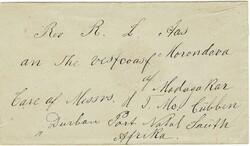 Rev R. L. Aas
on The Vestcoast of Morondova
Madagakar
Care of Messrs. J Mc Cubbin
Durban Port Natal South
Afrika.